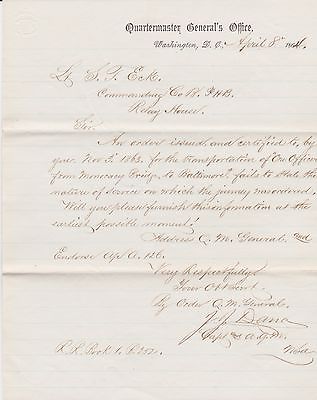 Quartermaster General's Office,
Washington, D. C., April 8" 1864.
Lt. S. T. Eck
Commanding Co B. P.H.B.
Relay House.
Sir:
An order issued and certified to, by
you Nov. 2" 1863, for the transportation of One Officer
from Monocacy Bridge to Baltimore, fails to state the
nature of service on which the journey was ordered.
Will you please furnish this information at the
earliest possible moment?
Address Q. M. General, and
Endorse
Very Respectfully
Your Obt Servt.
By Order Q. M. General.
J. J. Dana
Capt & A.Q.M.
R. R. Book 1. P. 252.